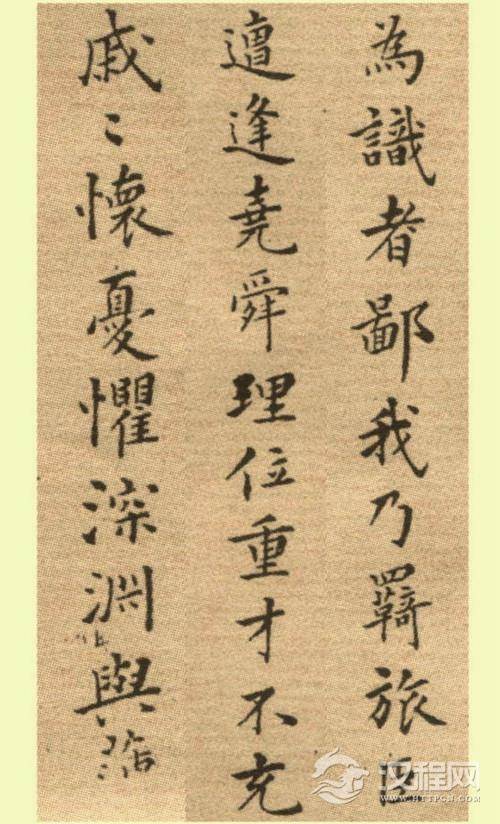 為識者鄙我乃羇旅
遭逢堯舜理位重才不充
戚〻懷憂懼深淵與
汉程网
HTTPCN.COM